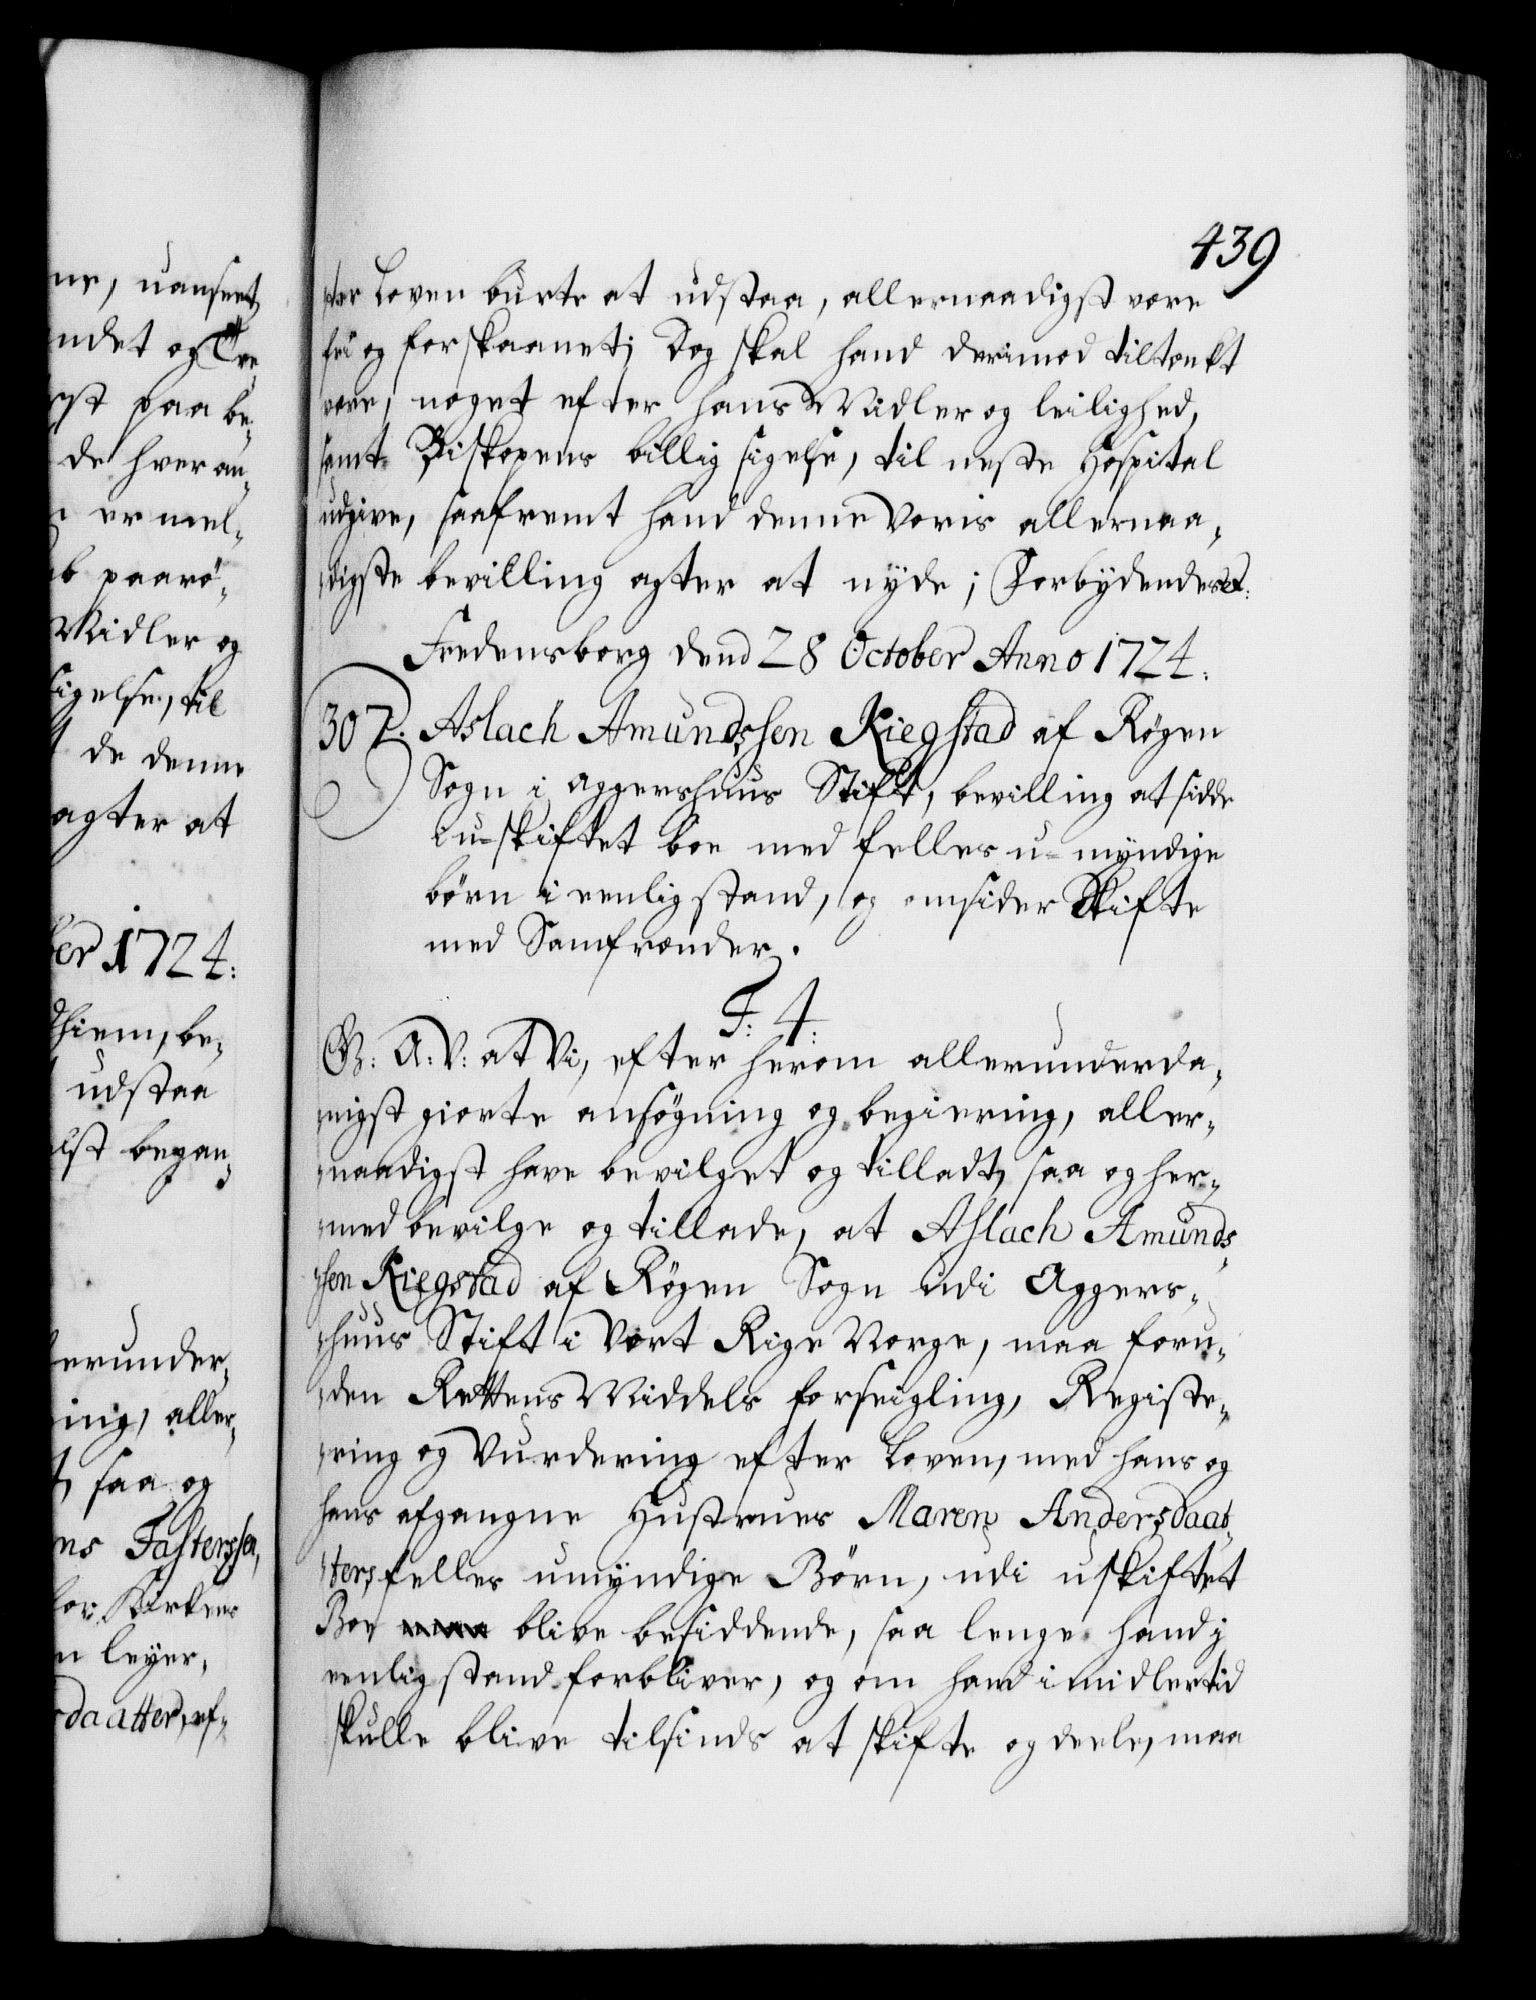 439
ter Loven burte at udstaa, allernaadigst være
fri og forskaanet; Dog skal hand derimod tiltænkt
være, noget efter hans Midler og leilighed,
samt Biskopens billig sigelse, til neste Hospital
udgive, saafremt hand denne Voris allernaa-
digste bevilling agter at nyde; Forbydendes et:
Fredensborg dend 28 October Anno 1724.
307. Aslach Amundssen Kiegstad af Røgen
Sogn i Aggershuus Stift, bevilling at sidde
i u-skiftet boe med felles u-myndige
børn i eenlig stand, og omsider Skifte
med Samfrænder.
F: 4.
G: A: V: at Vi, efter herom allerunderda-
nigst giorte ansøgning og begiering, aller-
naadigst have bevilget og tilladt, saa og her-
med bevilge og tillade, at Aslach Amunds-
sen Kiegstad af Røgen Sogn udi Aggers-
huus Stift i Vort Rige Norge, maa foru-
den Rettens Middels forseigling, Registe-
ring og Vurdering efter Loven, med hans og
hans afgangne Hustrues Maren Andersdaat-
ters felles umyndige Børn, udi uskiftet
Boe blive besiddende, saa lenge hand i
eenlig stand forbliver, og om hand imidlertid
skulle blive tilsinds at skifte og deele, maa